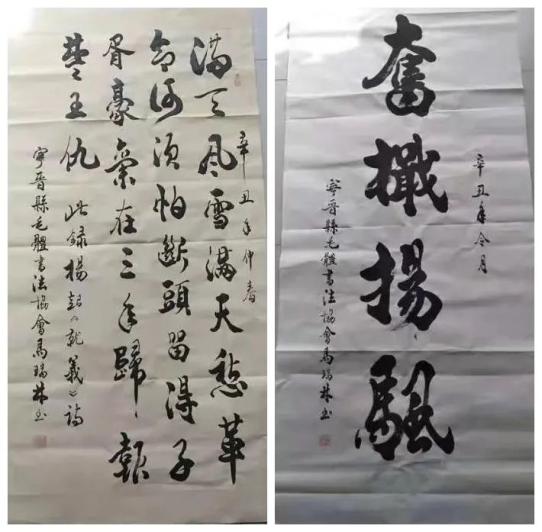 滿天风雪滿天愁革
辛丑年仲春
命何須怕斷頭留得子
胥豪氣在三年歸報
楚王仇 此録楊超《就義》詩
寧晉縣毛體書法協會馬瑞林书
辛丑年令月
奮檝揚颿
寧晉縣毛體書法協會馬瑞林书